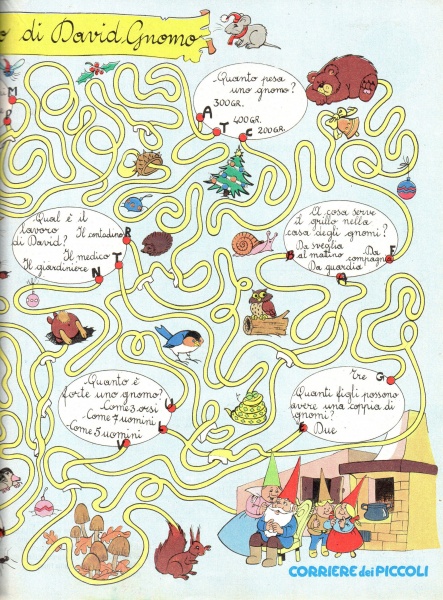 o di David Gnomo
Quanto pesa
uno gnomo?
300GR.
A
400GR.
T
200GR.
C
M
Qual è il
lavoro
di David?
Il contadino
R
Il medico
T
Il giardiniere
N
A cosa serve
il grillo nella
casa degli gnomi?
Da sveglia
al mattino
Da
compagnia
E
Da guardia
A
Quanto è
forte uno gnomo?
Come 3 orsi
Come 7 uomini
Come 5 uomini
V
Tre
G
Quanti figli possono
avere una coppia di
gnomi?
Due
CORRIERE dei PICCOLI